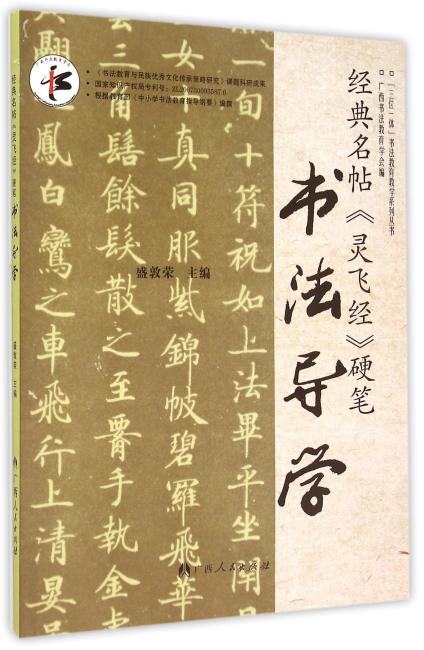 □ “三位一体”书法教育教学系列丛书
□ 广西书法教育学会编
经典名帖《灵飞经》硬笔
书法导学
· 《书法教育与民族优秀文化传承策略研究》课题科研成果
· 国家知识产权局专利号：ZL200730093587.6
· 根据教育部《中小学书法教育指导纲要》编撰
盛敦荣 主编
一旬十符祝如上法畢平坐閉目
真同服紫錦帔碧羅飛華
角髻餘髮散之至膺手執金虎
鳳白鸞之車飛行上清晏
广西人民出版社
经典名帖《灵飞经》硬笔
书法导学
盛敦荣 主编
广西人民出版社